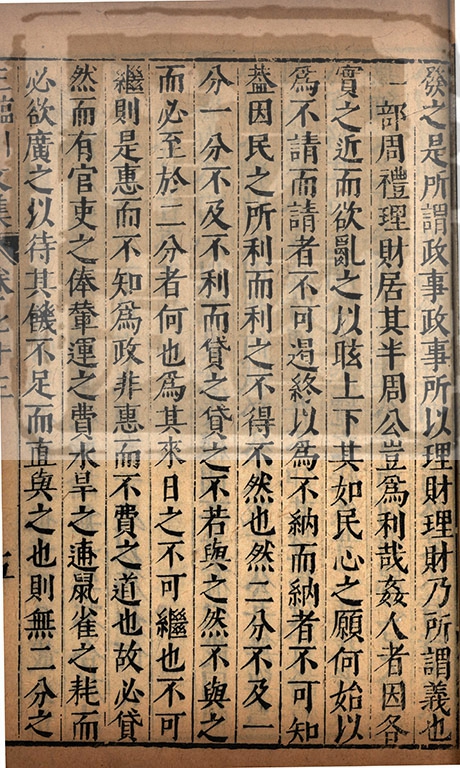 發之是所謂政事政事所以理財理財乃所謂義也
一部周禮理財居其半周公豈爲利哉姦人者因各
實之近而欲亂之以眩上下其如民心之願何始以
爲不請而請者不可遏終以爲不納而納者不可知
葢因民之所利而利之不得不然也然二分不及一
分一分不及不利而貸之貸之不若與之然不與之
而必至於二分者何也爲其來日之不可繼也不可
繼則是惠而不知爲政非惠而不費之道也故必貸
然而有官吏之俸輦運之費水旱之逋鼠雀之耗而
必欲廣之以待其饑不足而直與之也則無二分之
王臨川文集 卷七十三 五